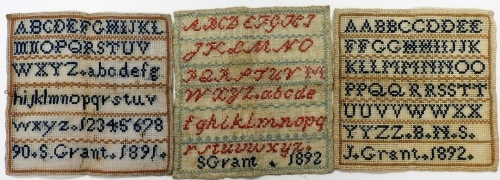 ABCDEFGHIJKL
MNOPQRSTUV
WXYZ.abcdefg
hijklmnopqrstuv
wxyz.12345678
90.S.Grant.1891.
ABCDEFGHI
JKLMNO
PQRSTUV
WXYZ.abcde
fghiklmnopq
rstuvwxyz.
SGrant . 1892
AABBCCDDEE
FFGGHHIIJJK
KLLMMNNOO
PPQQRRSSTT
UUVVWWXX
YYZZ.B.N.S.
J.Grant.1892.